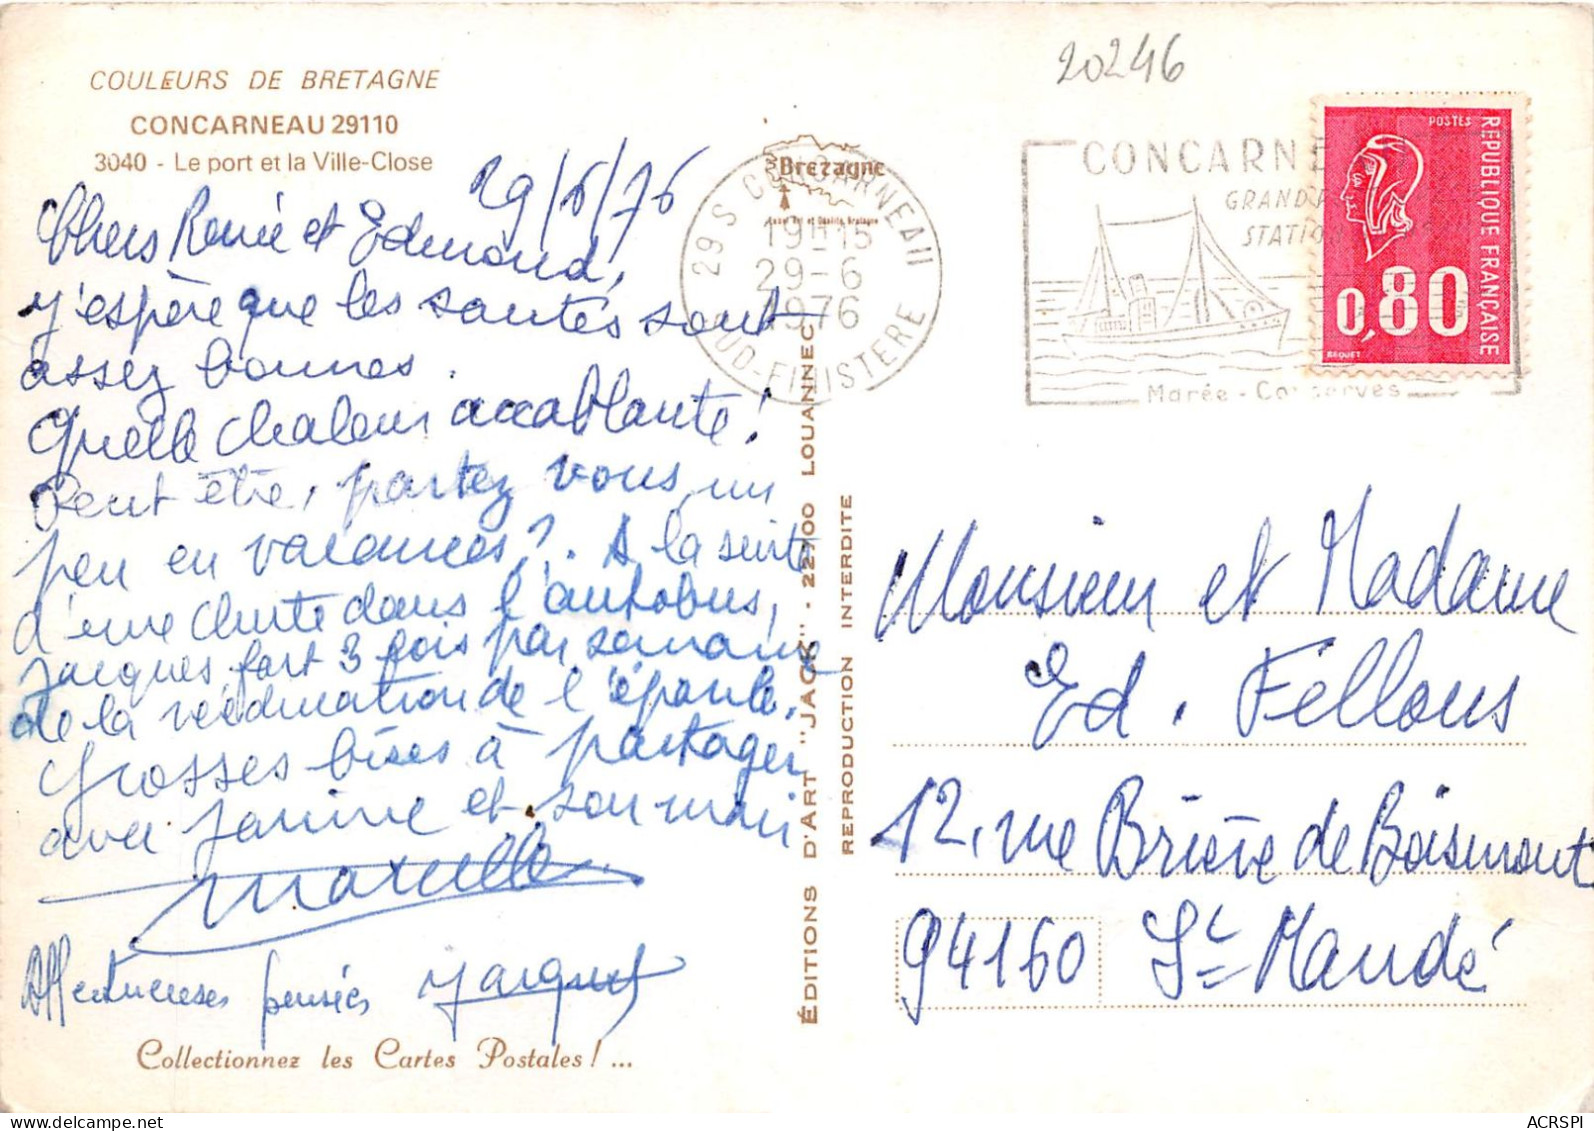 20246
COULEURS DE BRETAGNE
CONCARNEAU 29110
3040 - Le port et la Ville-Close
29/6/76
Chers Renée et Edmond,
j'espère que les santés sont
assez bonnes.
Quelle chaleur accablante !
Peut être, partez vous un
peu en vacances ? . A la suite
d'une chute dans l'autobus,
Jacques fait 3 fois par semaine
de la rééducation de l'épaule.
Grosses bises à partager
avec Janine et son mari
Marcelle
Affectueuses pensées Jacques
Collectionnez les Cartes Postales ! ...
ÉDITIONS D'ART "JACK" - 22700 LOUANNEC
REPRODUCTION INTERDITE
Bretagne
29 S CONCARNEAU
19H15
29-6
1976
SUD-FINISTERE
CONCARNE
GRAND P
STATION
Marée - Conserves
POSTES
REPUBLIQUE FRANÇAISE
0,80
BEQUET
Monsieur et Madame
Ed. Fellous
12, rue Brière de Boismont
94160 St Mandé
ACRSPI